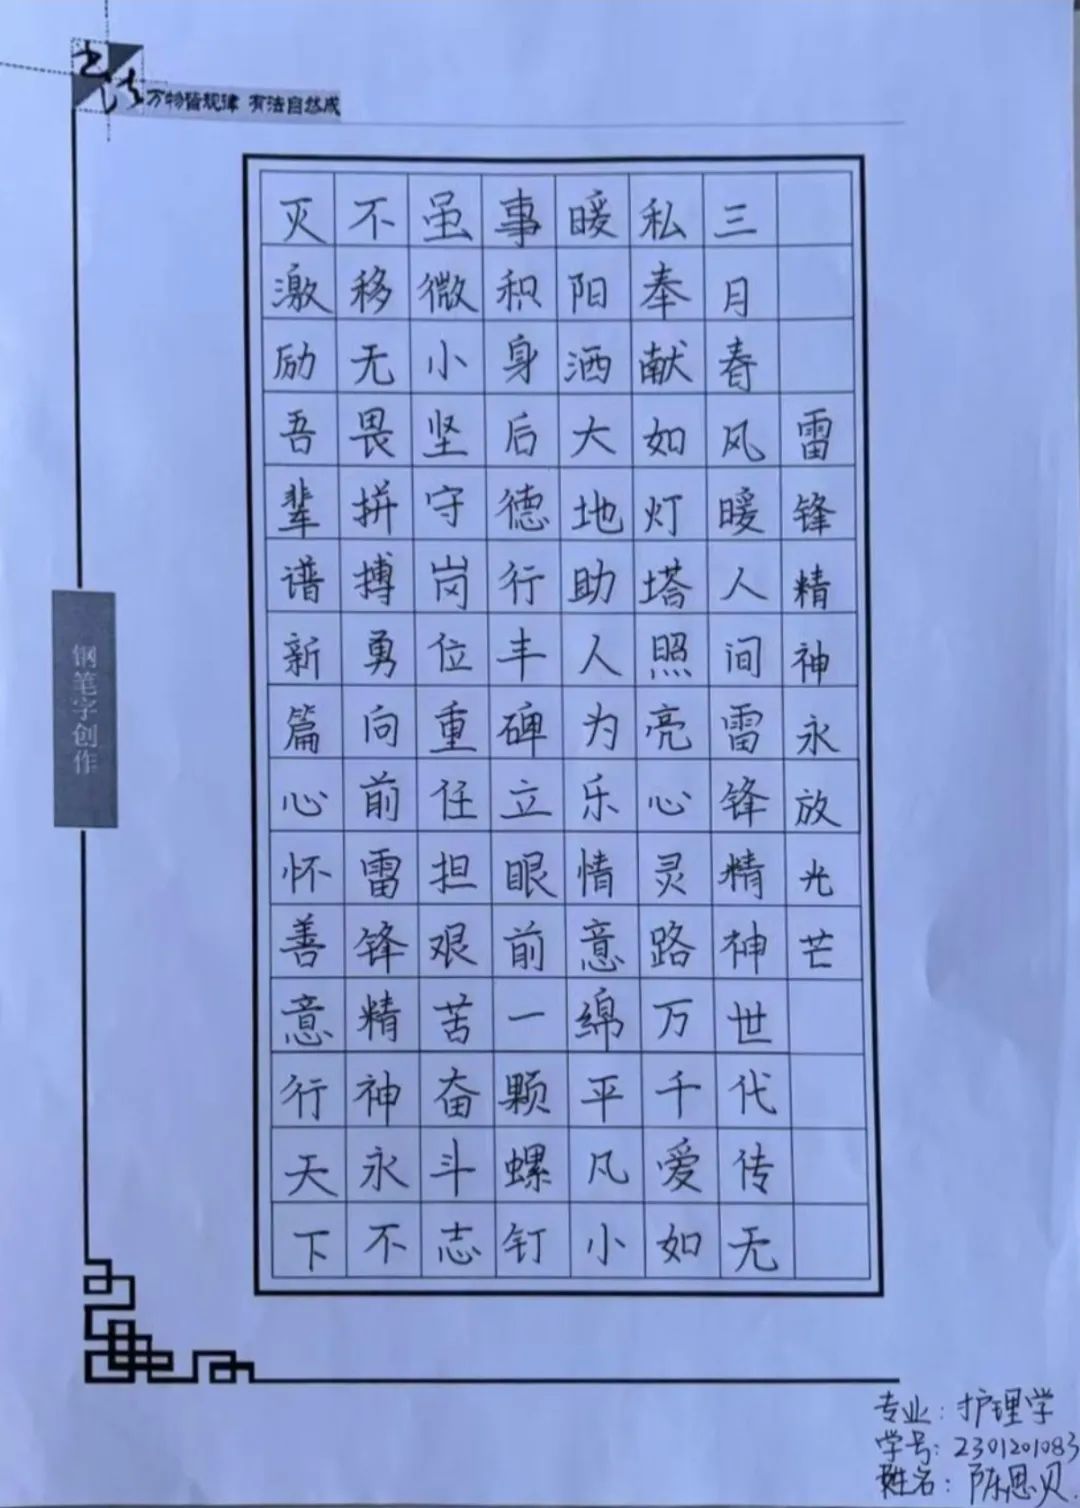 书法
万物皆规律 有法自然成
钢笔字创作
雷锋精神永放光芒
三月春风暖人间雷锋精神世代传无
私奉献如灯塔照亮心灵路万千爱如
暖阳洒大地助人为乐情意绵平凡小
事积身后德行丰碑立眼前一颗螺钉
虽微小坚守岗位重任担艰苦奋斗志
不移无畏拼搏勇向前雷锋精神永不
灭激励吾辈谱新篇心怀善意行天下
专业：护理学
学号：2301201083
姓名：陈思贝